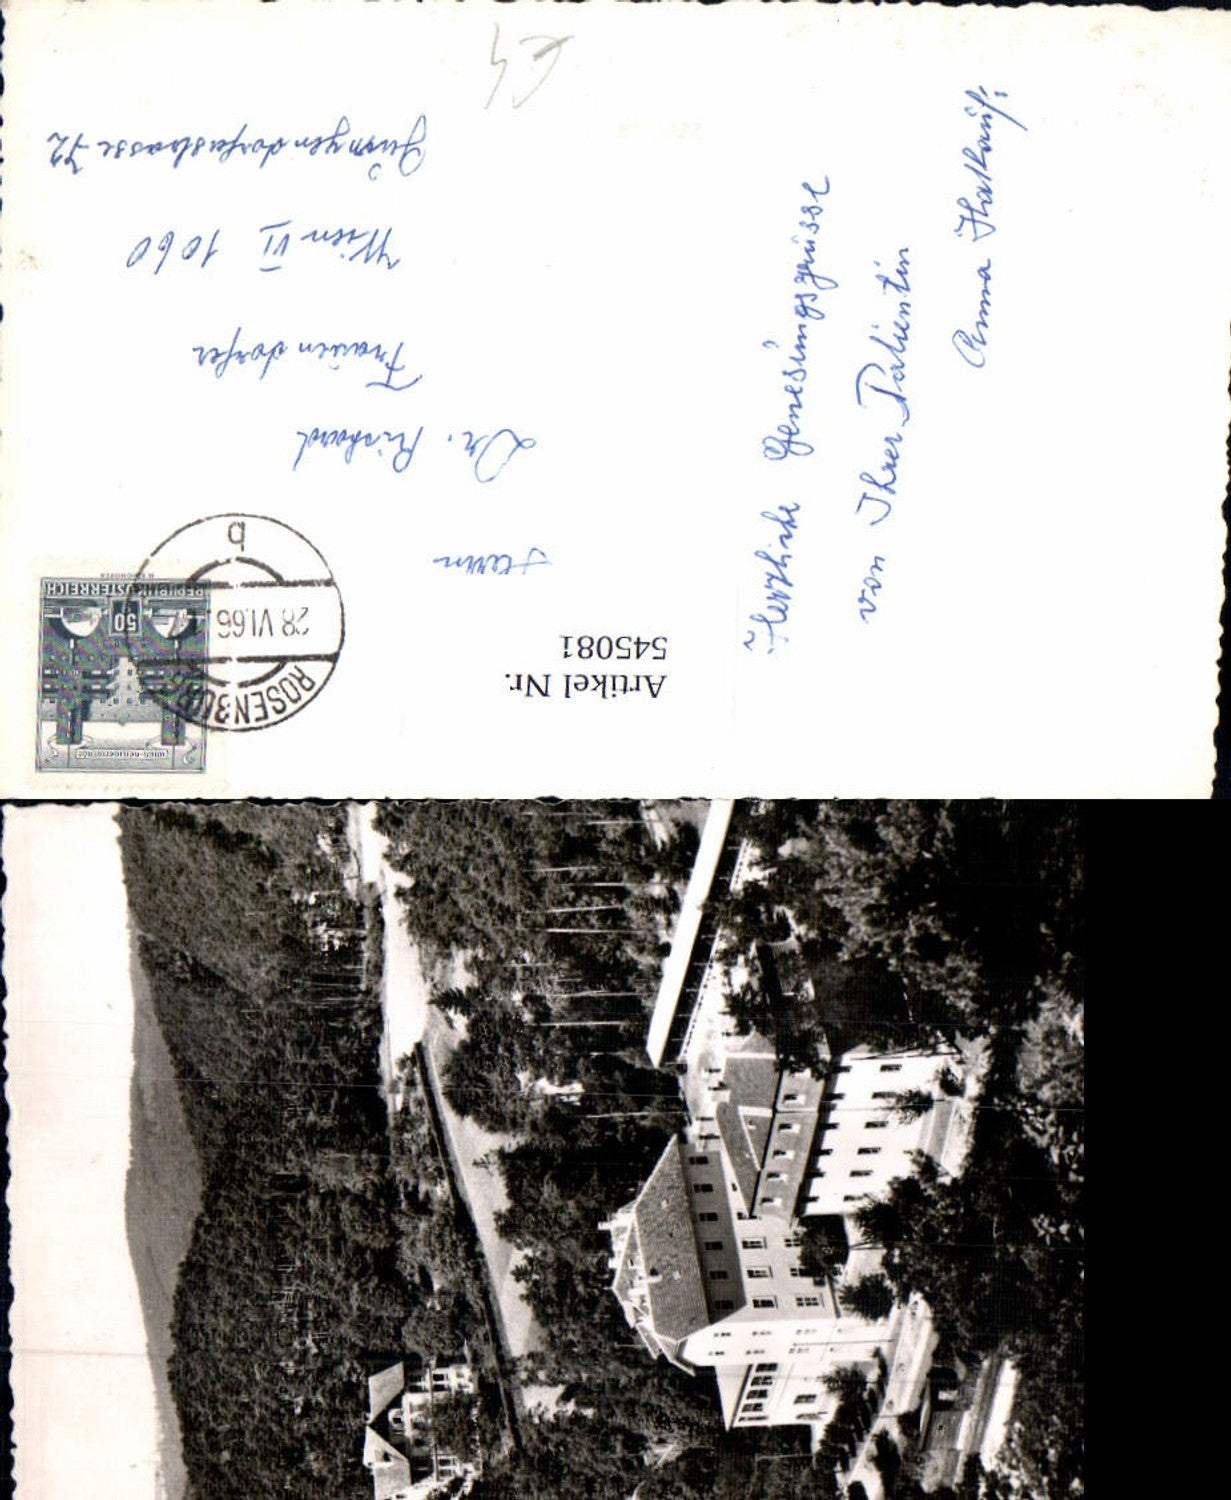 Herzliche Genesungsgrüsse
von Ihrer Patientin
Anna
Herrn
Dr. Richard
Frauendorfer
Wien VI 1060
Gumpendorferstrasse 72
€4
Artikel Nr.
545081
ROSENBURG
28.VI.66
b
WIEN-HEILIGENSTADT
50
REPUBLIK ÖSTERREICH